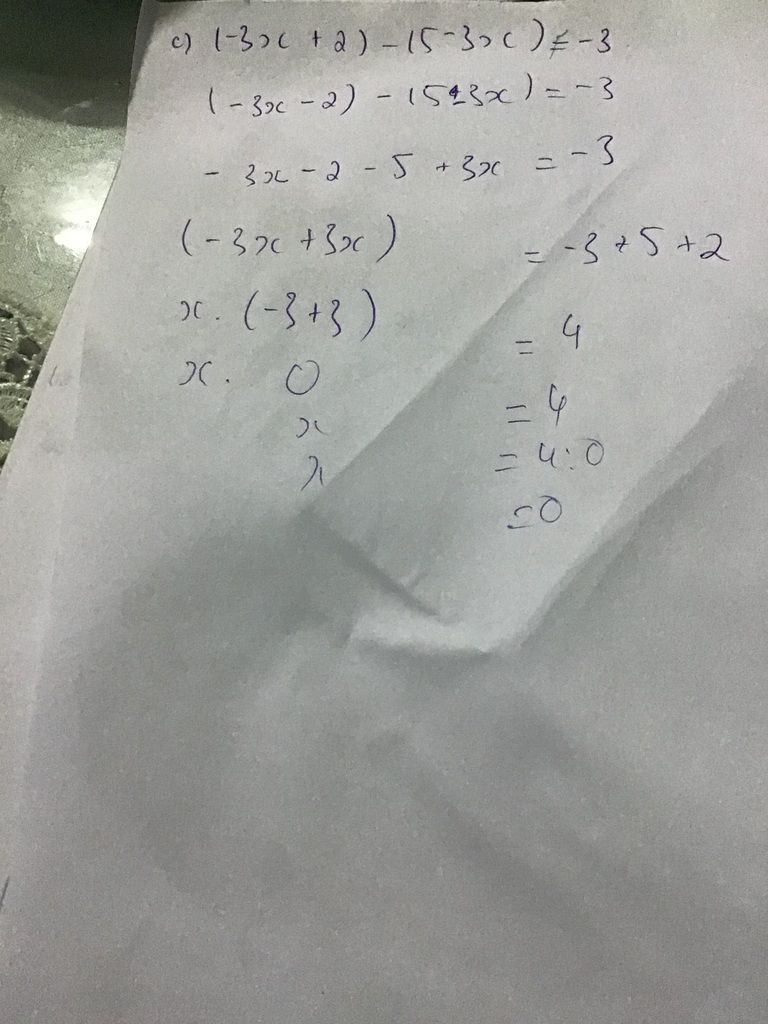 c) (-3x + 2) - (5 - 3x) = -3
(-3x - 2) - (5 - 3x) = -3
- 3x - 2 - 5 + 3x = -3
(-3x + 3x) = -3 + 5 + 2
x. (-3+3) = 4
x. 0 = 4
x = 4:0
x = 0